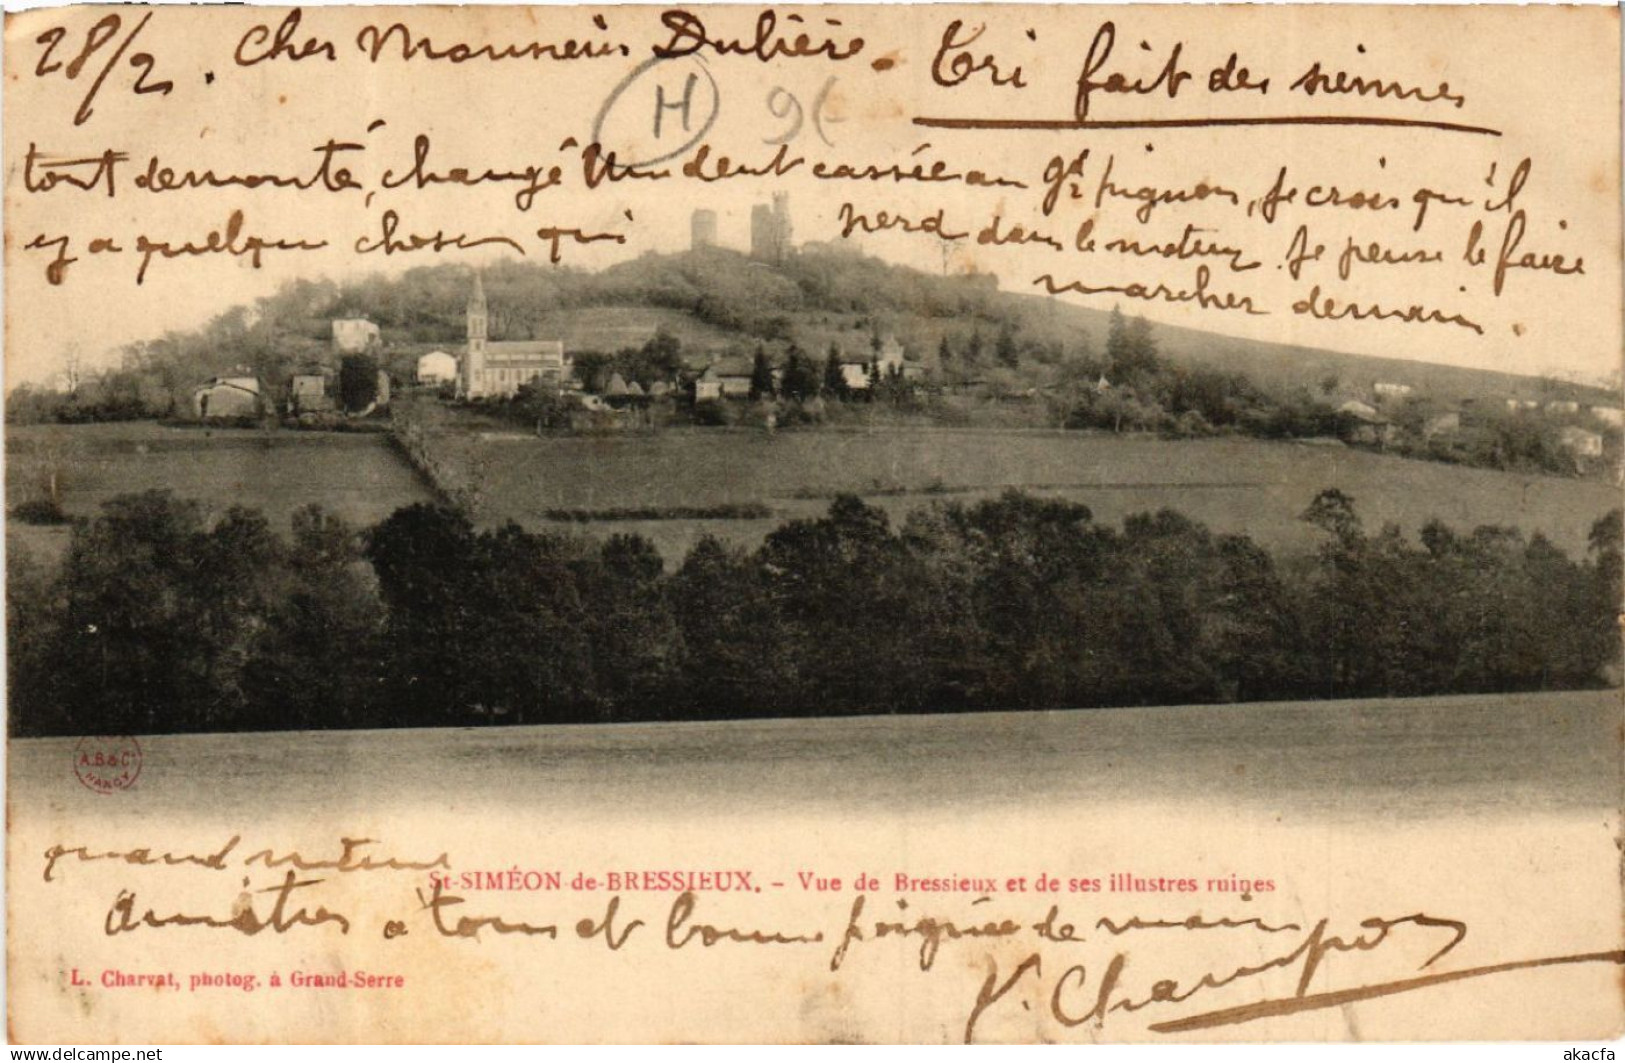 28/2. Cher Monsieur Dubière. Tri fait des siennes
tout démonté, changé Une dent cassée au gd pignon, je crois qu'il
y a quelque chose qui perd dans le moteur. Je pense le faire
marcher demain.
H 9
A.B & Cie
NANCY
quand même
St-SIMÉON-de-BRESSIEUX. - Vue de Bressieux et de ses illustres ruines
Amitiés à tous et bonne poignée de main
L. Charvat, photog. à Grand-Serre
akacfa